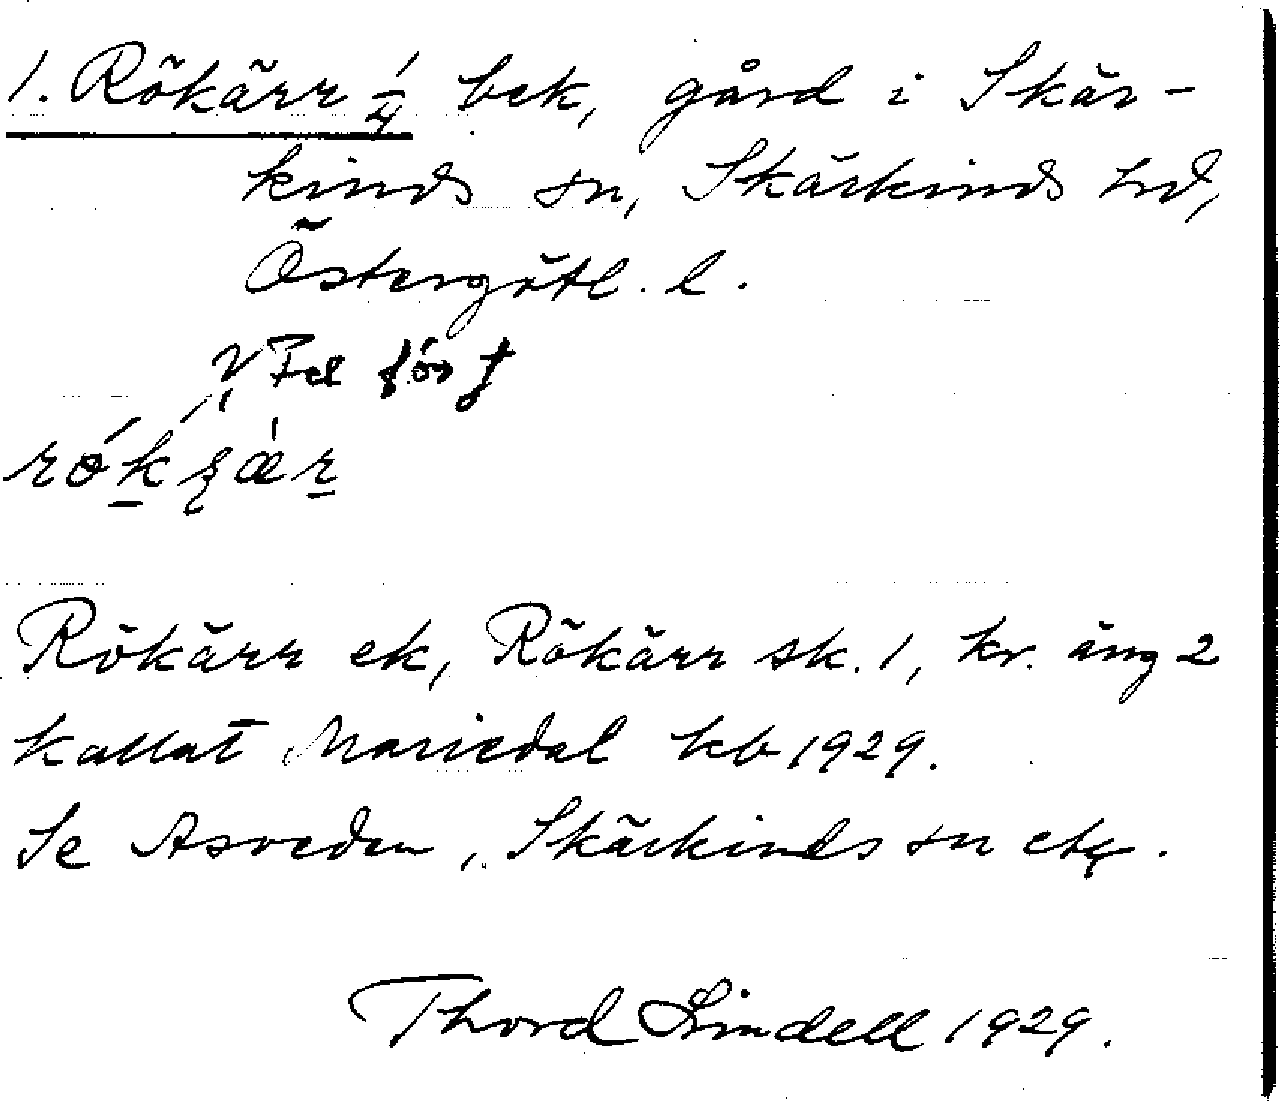 1. Rökärr 1/4 bek, gård i Skär-
kinds sn, Skärkinds hd,
Östergötl. l.
Fel för
Rökärr ek, Rökärr sk. 1, kr. äng 2
kallat Mariedal kb 1929.
Se Asveden, Skärkinds sn etc.
Thord Lindell 1929.